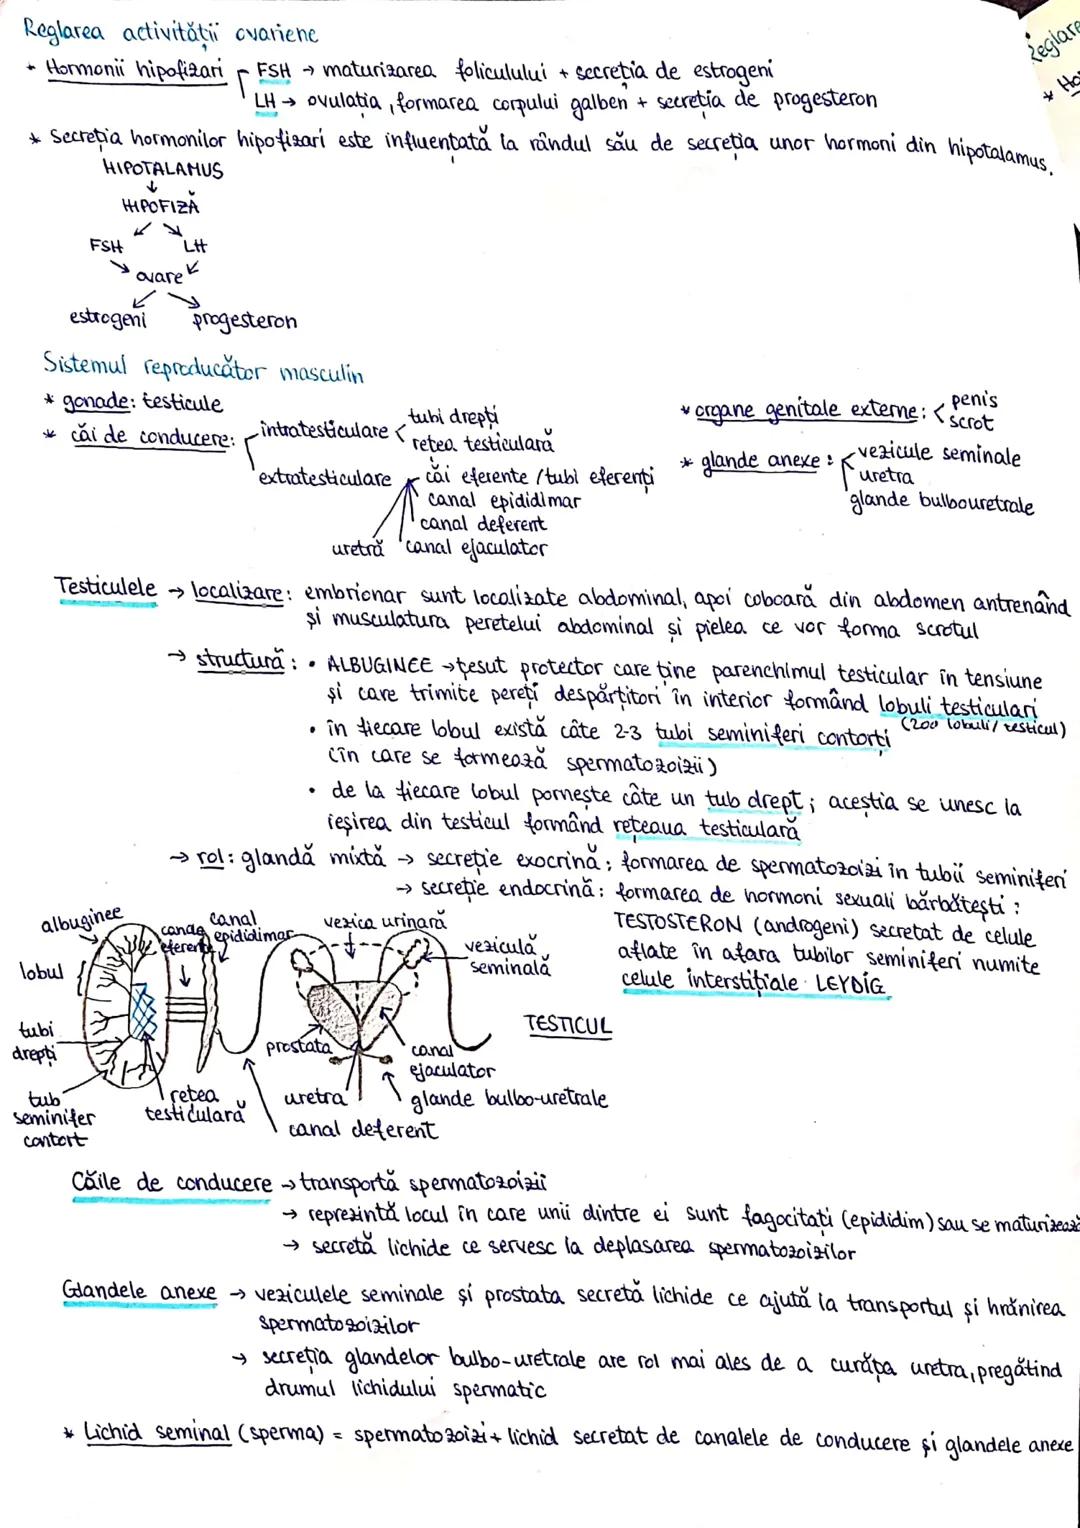 Reglarea activității ovariene
* Hormonii hipofizari FSH → maturizarea foliculului + secreția de estrogeni
LH → ovulația, formarea corpului galben + secreția de progesteron
* Secreția hormonilor hipofizari este influențată la rândul său de secreția unor hormoni din hipotalamus.
HIPOTALAMUS
↓
HIPOFIZĂ
FSH LH
ovare
estrogeni progesteron
Sistemul reproducător masculin
* gonade: testicule
* căi de conducere: intratesticulare tubi drepți
rețea testiculară
extratesticulare căi eferente / tubi eferenți
canal epididimar
canal deferent
uretră canal ejaculator
* organe genitale externe: penis
scrot
* glande anexe: vezicule seminale
uretra
glande bulbouretrale
Testiculele → localizare: embrionar sunt localizate abdominal, apoi coboară din abdomen antrenând
și musculatura peretelui abdominal și pielea ce vor forma scrotul
→ structură: • ALBUGINEE → țesut protector care ține parenchimul testicular în tensiune
și care trimite pereți despărțitori în interior formând lobuli testiculari
(200 lobuli/testicul)
• în fiecare lobul există câte 2-3 tubi seminiferi contorți
(în care se formează spermatozoizii)
• de la fiecare lobul pornește câte un tub drept; aceștia se unesc la
ieșirea din testicul formând rețeaua testiculară
→ rol: glandă mixtă → secreție exocrină: formarea de spermatozoizi în tubii seminiferi
→ secreție endocrină: formarea de hormoni sexuali bărbătești:
TESTOSTERON (androgeni) secretat de celule
aflate în afara tubilor seminiferi numite
celule interstițiale LEYDIG
albuginee
canale eferente
canal epididimar
vezica urinară
veziculă seminală
lobul
tubi drepți
TESTICUL
prostata
canal ejaculator
tub seminifer contort
rețea testiculară
uretra
glande bulbo-uretrale
canal deferent
Căile de conducere → transportă spermatozoizii
→ reprezintă locul în care unii dintre ei sunt fagocitați (epididim) sau se maturizează
→ secretă lichide ce servesc la deplasarea spermatozoizilor
Glandele anexe → veziculele seminale și prostata secretă lichide ce ajută la transportul și hrănirea
spermatozoizilor
→ secreția glandelor bulbo-uretrale are rol mai ales de a curăța uretra, pregătind
drumul lichidului spermatic
* Lichid seminal (sperma) = spermatozoizi + lichid secretat de canalele de conducere și glandele anexe